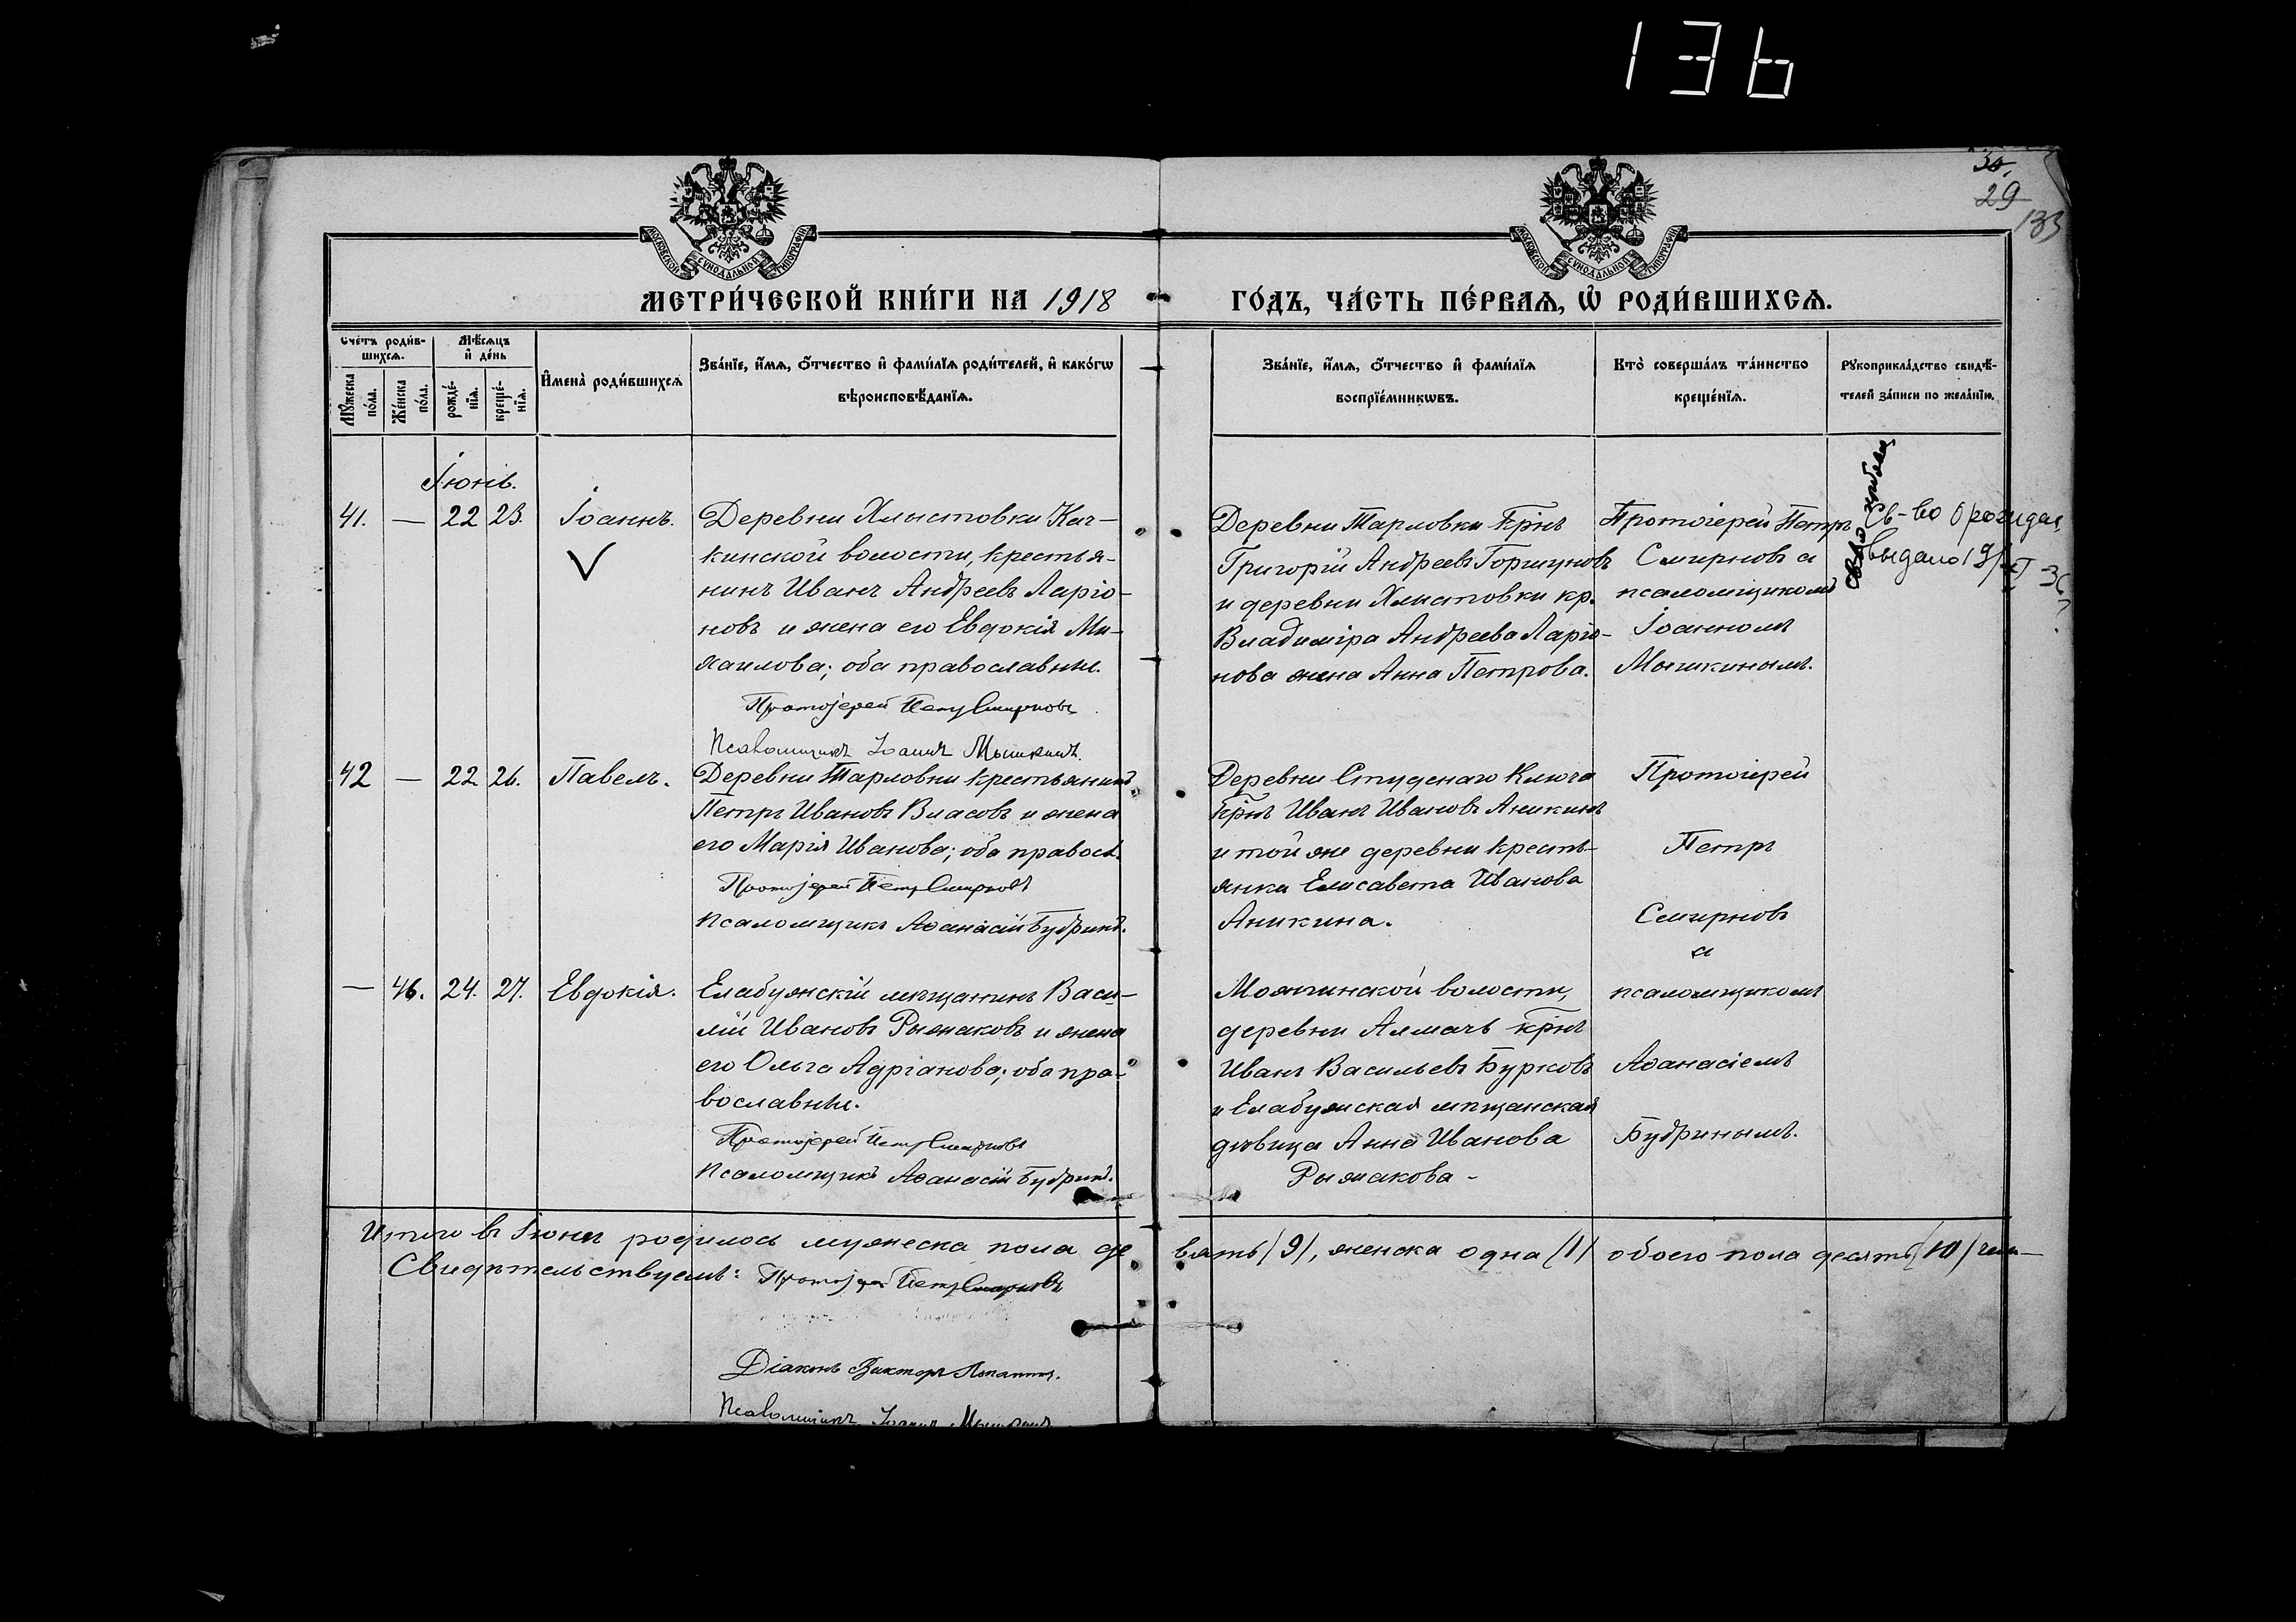 136
30,
29
133
МОСКОВСКОЙ СУНОДАЛЬНОЙ ТИПОГРАФІИ
МОСКОВСКОЙ СУНОДАЛЬНОЙ ТИПОГРАФІИ
МЕТРИ́ЧЕСКОЙ КНИ́ГИ НА 1918 ГО́ДЪ, ЧА́СТЬ ПЕ́РВАѦ, Ѽ РОДИ́ВШИХСѦ.
Счетъ роди́в-
шихсѧ.
Мꙋжеска
по́ла.
Же́нска
по́ла.
Мѣ́сѧцъ
и҆ де́нь
рожде́-
нїѧ.
креще́-
нїѧ.
И҆мена̀ роди́вшихсѧ
Зва́нїе, и҆́мѧ, ѻ҆́тчество и҆ фами́лїѧ роди́телей, и҆ како́гѡ
вѣроисповѣ́данїѧ.
Зва́нїе, и҆́мѧ, ѻ҆́тчество и҆ фами́лїѧ
воспрїе́мникѡвъ.
Кто̀ соверша́лъ та́инство
креще́нїѧ.
Рꙋкоприкла́дство свидѣ́-
телей за́писи по жела́нїю.
Іюнь.
41. — 22 23. Іоаннъ.
Деревни Хлыстовки Кач-
кинской волости, крестья-
нинъ Иванъ Андреевъ Ларіо-
новъ и жена его Евдокія Ми-
хаилова; оба православные.
Протоіерей Петръ Смирновъ
Псаломщикъ Іоаннъ Мышкинъ.
Деревни Тарловки кр̄нъ
Григорій Андреевъ Горшуновъ
и деревни Хлыстовки кр.
Владиміра Андреева Ларіо-
нова жена Анна Петрова.
Протоіерей Петръ
Смирновъ съ
псаломщикомъ
Іоанномъ
Мышкинымъ.
Св-во о рожден.
выдано 19
42 — 22 26. Павелъ.
Деревни Тарловки крестьянинъ
Петръ Ивановъ Власовъ и жена
его Марія Иванова; оба правосл.
Протоіерей Петръ Смирновъ
Псаломщикъ Аѳанасій Будринъ.
Деревни Студенаго Ключа
кр̄нъ Иванъ Ивановъ Аникинъ
и той же деревни кресть-
янка Елисавета Иванова
Аникина.
Протоіерей
Петръ
Смирновъ
съ
— 46. 24. 27. Евдокія.
Елабужскій мѣщанинъ Васи-
лій Ивановъ Рыжаковъ и жена
его Ольга Адріанова; оба пра-
вославные.
Протоіерей Петръ Смирновъ
Псаломщикъ Аѳанасій Будринъ.
Можгинской волости,
деревни Алмачъ кр̄нъ
Иванъ Васильевъ Бурковъ
и Елабужская мѣщанская
дѣвица Анна Иванова
Рыжакова -
псаломщикомъ
Аѳанасіемъ
Будринымъ.
Итого въ Іюнѣ родилось мужеска пола де вять (9), женска одна (1) обоего пола десять (10) чел-
Свидѣтельствуемъ: Протоіерей Петръ Смирновъ
Діаконъ Викторъ
Псаломщикъ Іоаннъ Мышкинъ